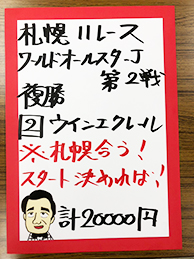 札幌11レース
ワールドオールスターJ
第2戦
複勝
2 ウインエクレール
※札幌合う!
スタート決めれば!
計20000円